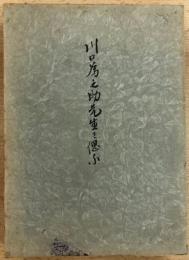 川口彦之助先生を偲ぶ